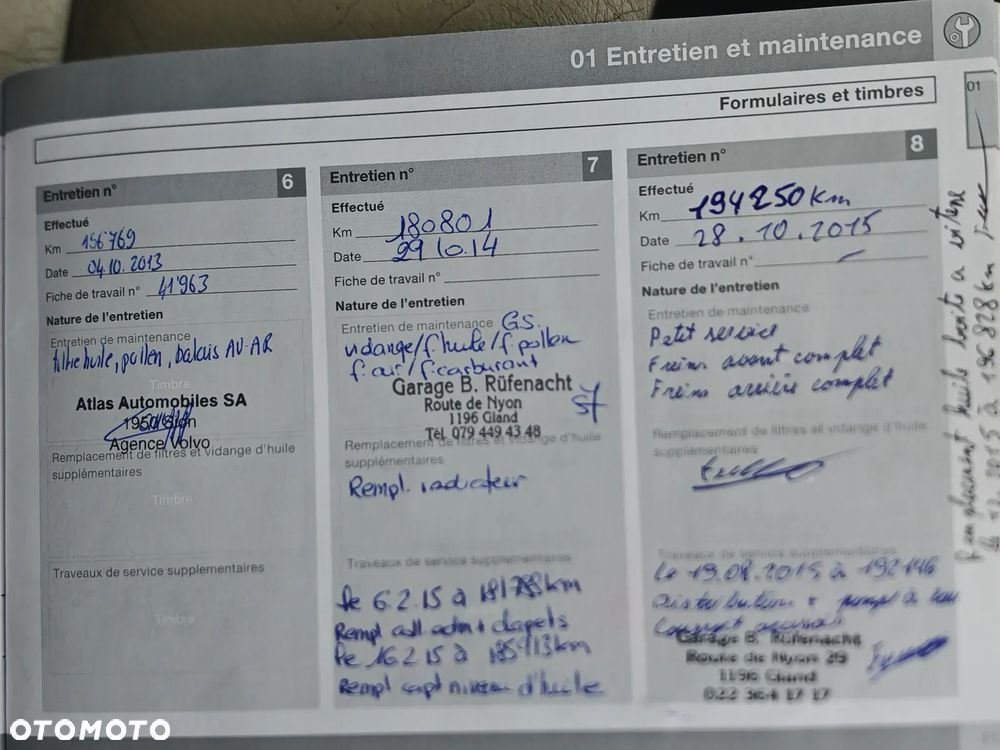 01 Entretien et maintenance
01
Formulaires et timbres
Entretien n° 6
Effectué
Km 156'769
Date 04.10.2013
Fiche de travail n° 41'963
Nature de l'entretien
Entretien de maintenance
filtre huile, pollen, balais AV-AR
Timbre
Atlas Automobiles SA
1950 Sion
Agence Volvo
Remplacement de filtres et vidange d'huile
supplémentaires
Timbre
Traveaux de service supplementaires
Timbre
Entretien n° 7
Effectué
Km 180801
Date 29 10.14
Fiche de travail n°
Nature de l'entretien
Entretien de maintenance G.S.
vidange/f.huile/f.pollen
f.air/f.carburant
Garage B. Rüfenacht
Route de Nyon
1196 Gland
Tél. 079 449 43 48
Remplacement de filtres et vidange d'huile
supplémentaires
Rempl. radiateur
Traveaux de service supplementaires
Le 6.2.15 à km
Rempl
Le 16.2.15 à km
Rempl capt niveau d'huile
Entretien n° 8
Effectué
Km 194250 km
Date 28.10.2015
Fiche de travail n°
Nature de l'entretien
Entretien de maintenance
Petit service
Freins avant complet
Freins arrière complet
Remplacement de filtres et vidange d'huile
supplémentaires
Traveaux de service supplementaires
Le 19.08.2015 à 192146
Distribution + pompe à eau
Garage B. Rüfenacht
Route de Nyon 29
1196 Gland
022 364 17 17
Remplacement huile boite a vitesse
2015 à 196828 km
OTOMOTO